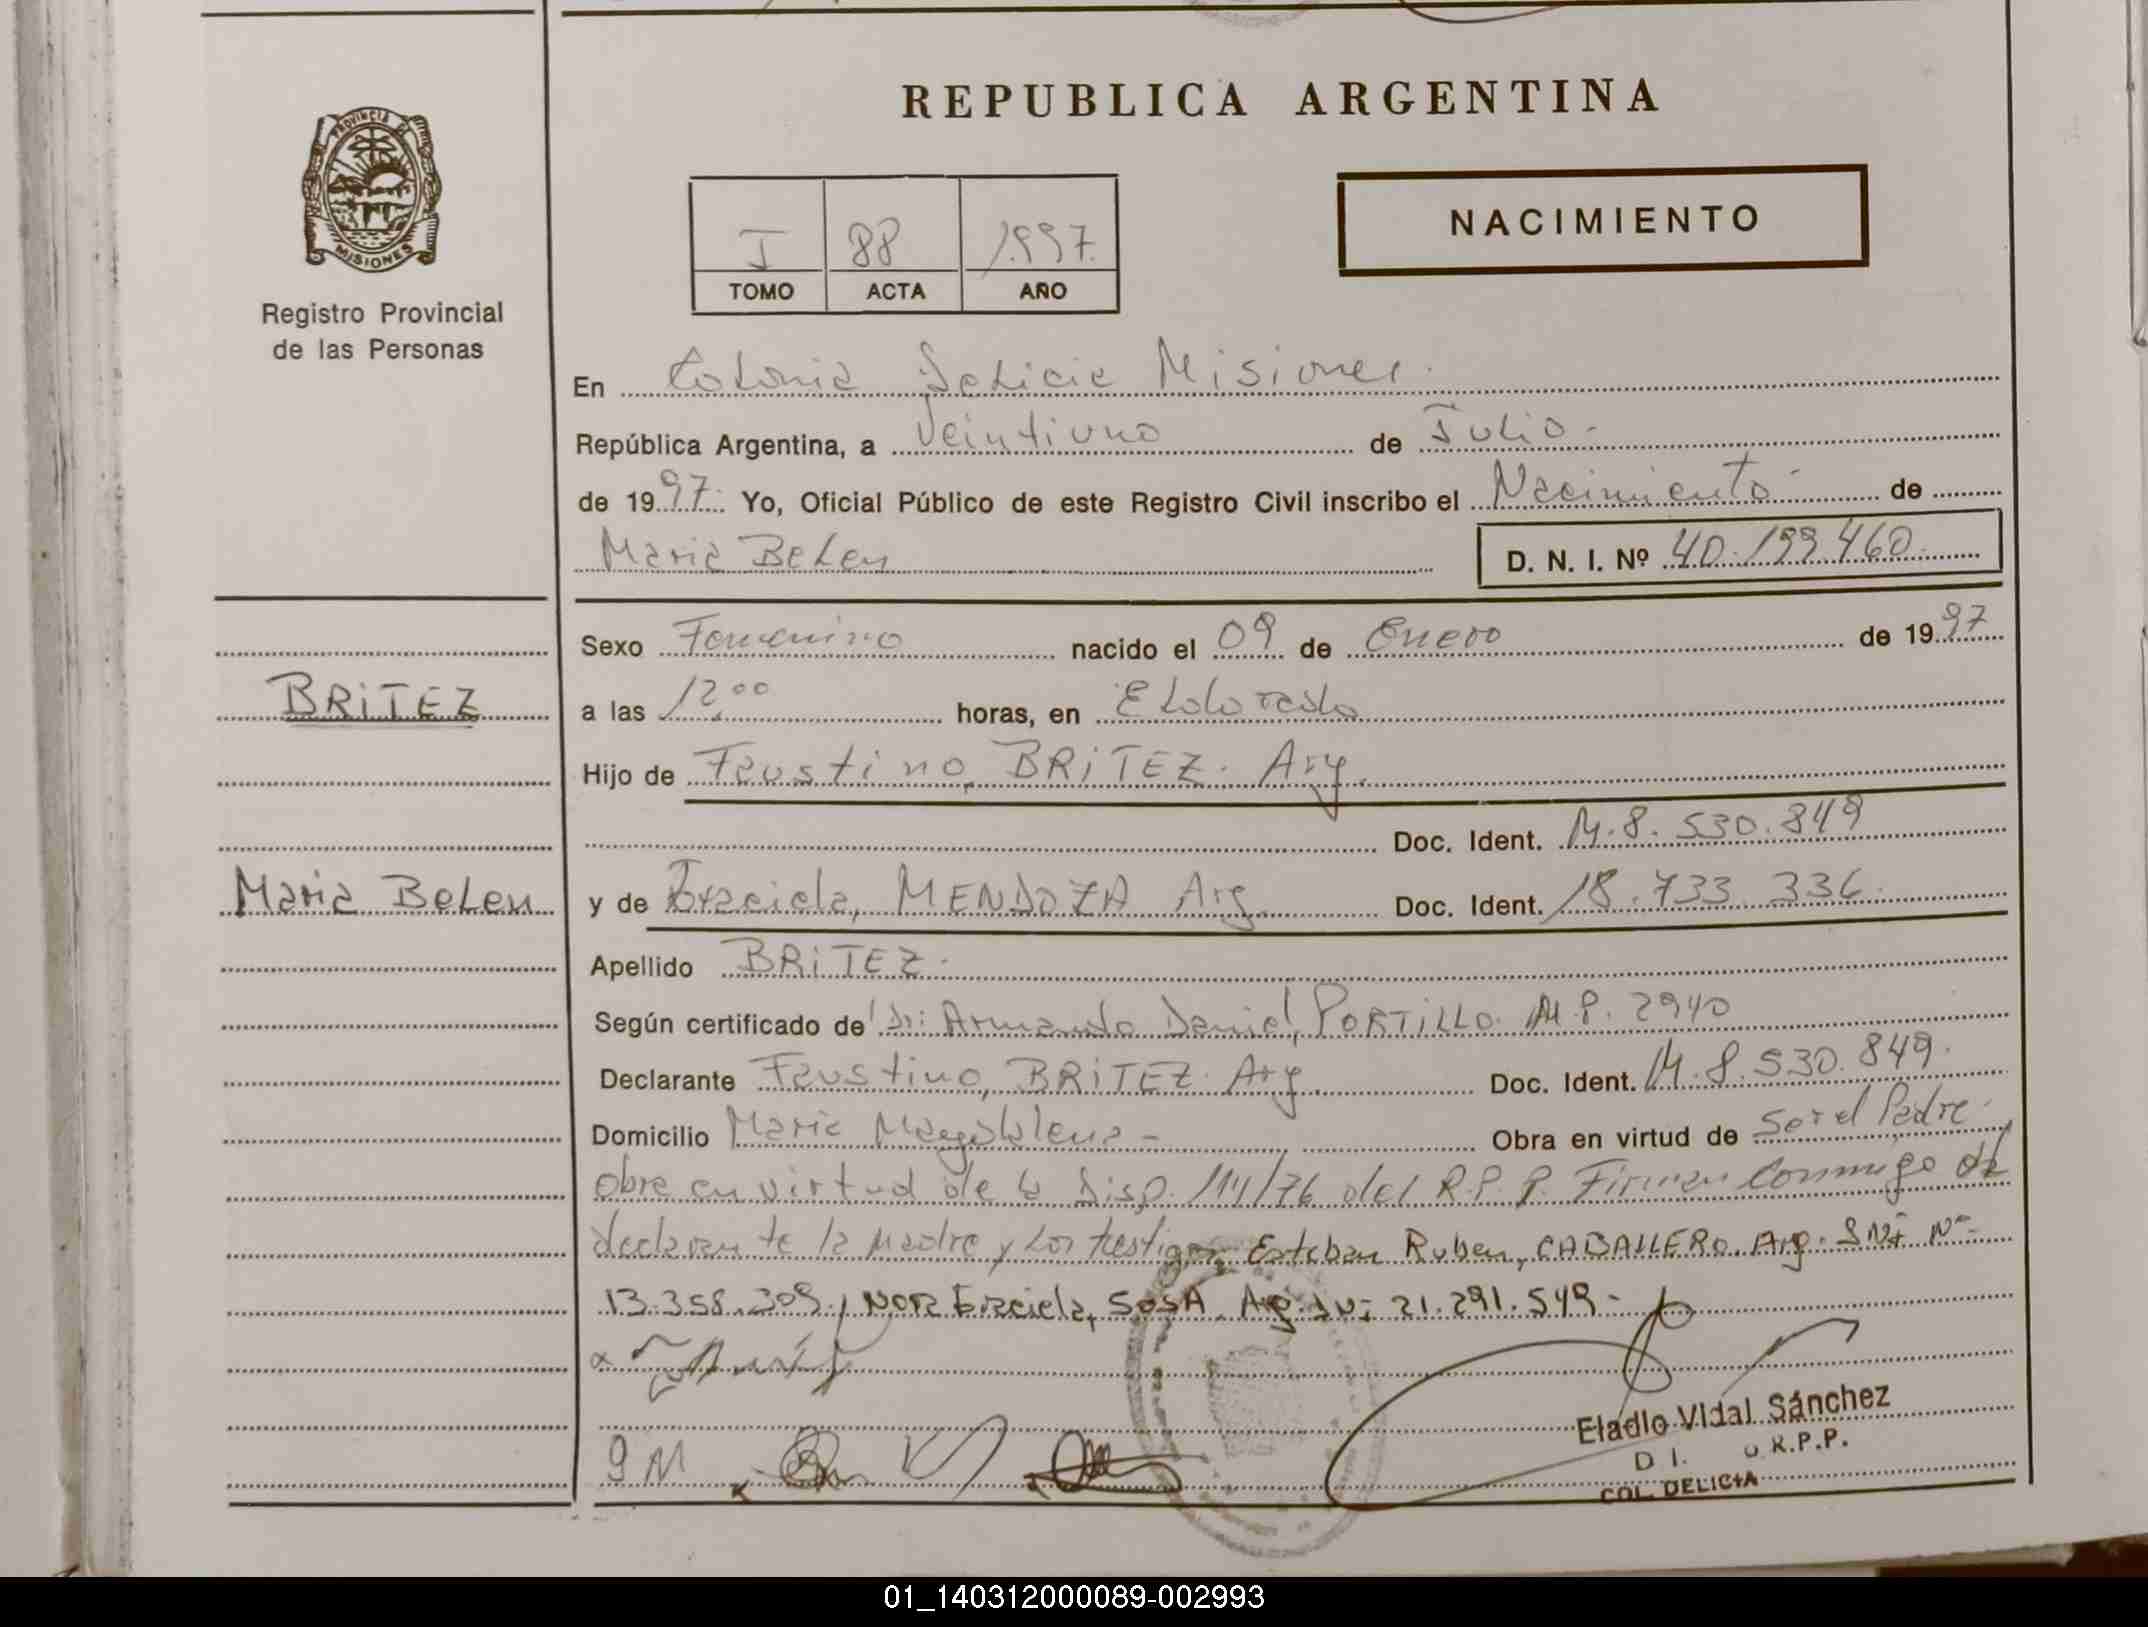 REPUBLICA ARGENTINA
PROVINCIA DE
MISIONES
Registro Provincial
de las Personas
NACIMIENTO
I 88 1.997.
TOMO ACTA AÑO
En Colonia Delicia Misiones.
República Argentina, a Veintiuno de Julio-
de 1997. Yo, Oficial Público de este Registro Civil inscribo el Nacimiento de
Maria Belen D. N. I. Nº 40.199.460.
Sexo Femenino nacido el 09 de Enero de 1997
BRITEZ
a las 12,00 horas, en Eldorado
Hijo de Faustino, BRITEZ. Arg.
Doc. Ident. M.8.530.849
Maria Belen
y de Graciela, MENDOZA Arg. Doc. Ident. 18.733.336.
Apellido BRITEZ.
Según certificado de Dr: Armando Daniel, PORTILLO. M.P. 2940
Declarante Faustino, BRITEZ. Arg. Doc. Ident. M.8.530.849.
Domicilio Maria Magdalena- Obra en virtud de Ser el Padre.
obra en virtud de la Disp. 114/76 del R.P.P. Firman Conmigo el
declarante la Madre y los testigos Esteban Ruben, CABALLERO. Arg. DNI Nº
13.358.309 y Nora Graciela, SOSA. Arg. DNI 21.291.549-
G M
Eladio Vidal Sánchez
R.P.P.
COL. DELICIA
01_140312000089-002993